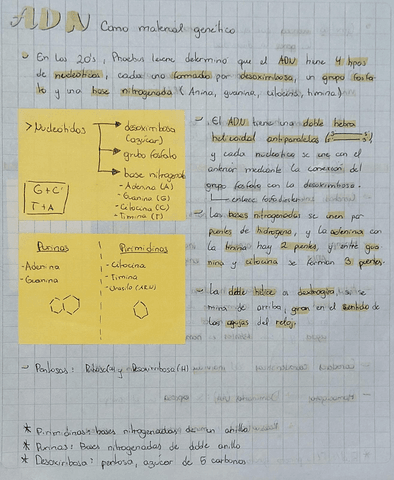 ADN Como material genético
En los 20's, Phoebus Levene determino que el ADN tiene 4 tipos
de nucleótidos, cada uno formado por desoxirribosa, un grupo fosfa
to y una base nitrogenada (Anina, guanina, citocina, timina)
> Nucleotidos
desoxirribosa
(azúcar)
grupo fosfato
base nitrogenada
- Adenina (A)
- Guanina (G)
- Citocina (C)
- Timina (T)
G+C
T+A
Purinas
- Adenina
- Guanina
Pirimidinas
- Citocina
- Timina
- Uracilo (ARN)
El ADN tiene una doble hebra
helicoidal antiparalela
y cada nucleotido se une con el
anterior mediante la conexión del
grupo fosfato con la desoxirribosa.
enlace fosfodiester
Las bases nitrogenadas se unen por
puentes de hidrogeno, y la adenina con
la timina hay 2 puentes, y entre gua
nina y citocina se forman 3 puentes.
La doble hélice es dextrogira, si se
mira de arriba, giran en el sentido de
las agujas del reloj.
- Pentosas: Ribosa y Desoxirribosa (H)
* Pirimidinas: bases nitrogenadas de un anillo
* Purinas: Bases nitrogenadas de doble anillo
* Desoxiribosa: pentosa, azúcar de 5 carbonos